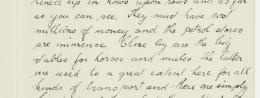 lined up in rows upon rows and as far
as you can see. They must have cost
millions of money and the petrol stores
are immense. Close by are the big
stables for horses and mules. The latter
are used to a great extent here for all
kinds of transport and there are simply